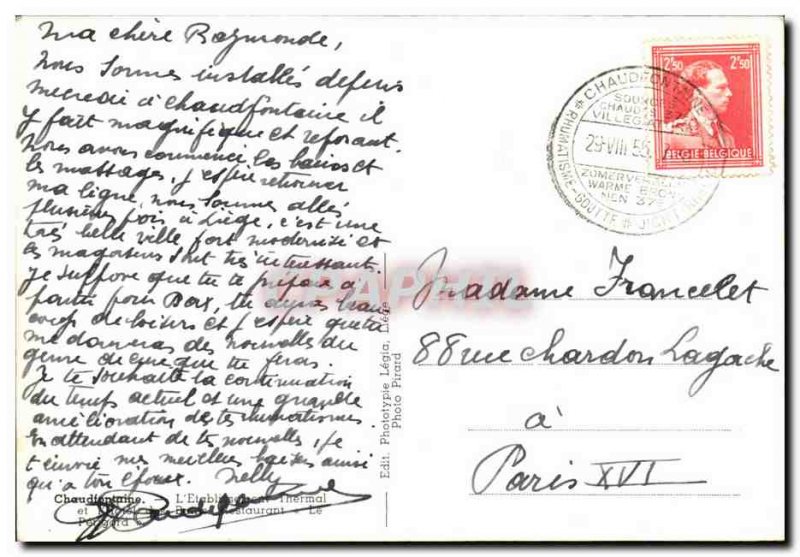 Ma chère Raymonde,
Nous sommes installés depuis
mercredi à Chaudfontaine il
y fait magnifique et reposant.
Nous avons commencé les bains et
les massages, j'espère retrouver
ma ligne, nous sommes allés
plusieurs fois à Liège, c'est une
très belle ville, fort modernisé et
les magasins sont très intéressants.
Je suppose que tu te prépare à
partir pour Dax, tu auras beau
coup de loisirs et j'espère que tu
me donneras des nouvelles du
genre de cure que tu feras.
Je te souhaite la continuation
du temps actuel et une grande
amélioration de tes rhumatismes.
En attendant de tes nouvelles, je
t'envoie mes meilleurs baisers ainsi
qu'à ton époux. Nelly
Chaudfontaine. L'Etablissement Thermal
et Hôtel des Bains Restaurant « Le
Périgord »
Edit. Phototypie Légia, Liége
Photo Pirard
CHAUDFONTAINE
SOURCE
CHAUD
VILLEG
29 VIII 55
ZOMERVER
WARME BRON
MEN 37°
RHUMATISME - GOUTTE * JICHT
2,50 2,50
BELGIE-BELGIQUE
CPAPHIL
Madame Francelet
88 rue Chardon Lagache
à
Paris XVI